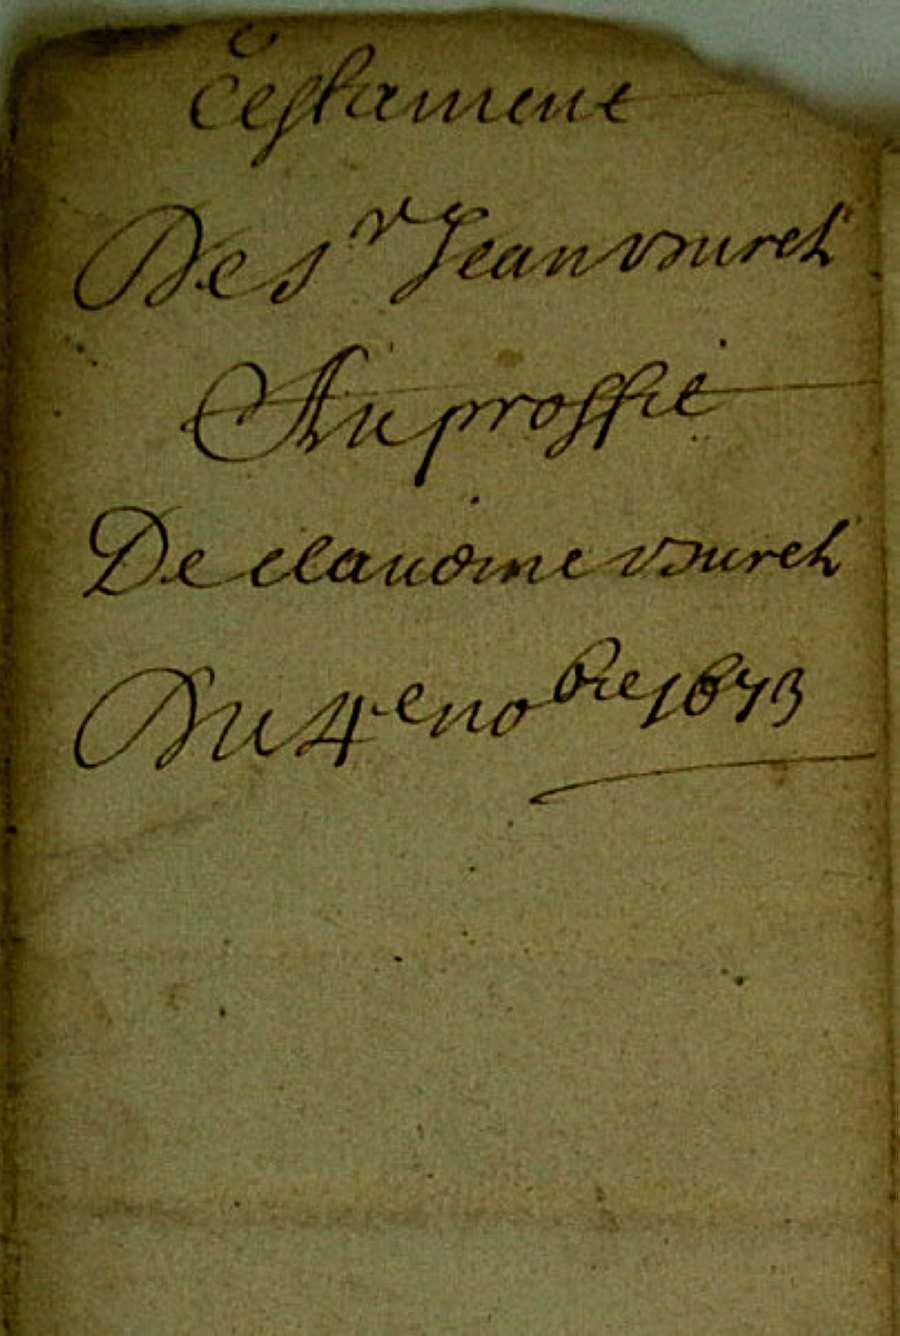 Testament
De Sr Jean vuureh
Au proffit
De claudine vuureh
Du 4e nobre 1673